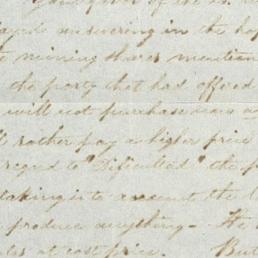 answering in the hop
mining shares mention
the party that has offered
will not purchase now
rather pay a higher price
regard to "Dificultad" the p
taking in to account the
produce anything - He
at cost price. But